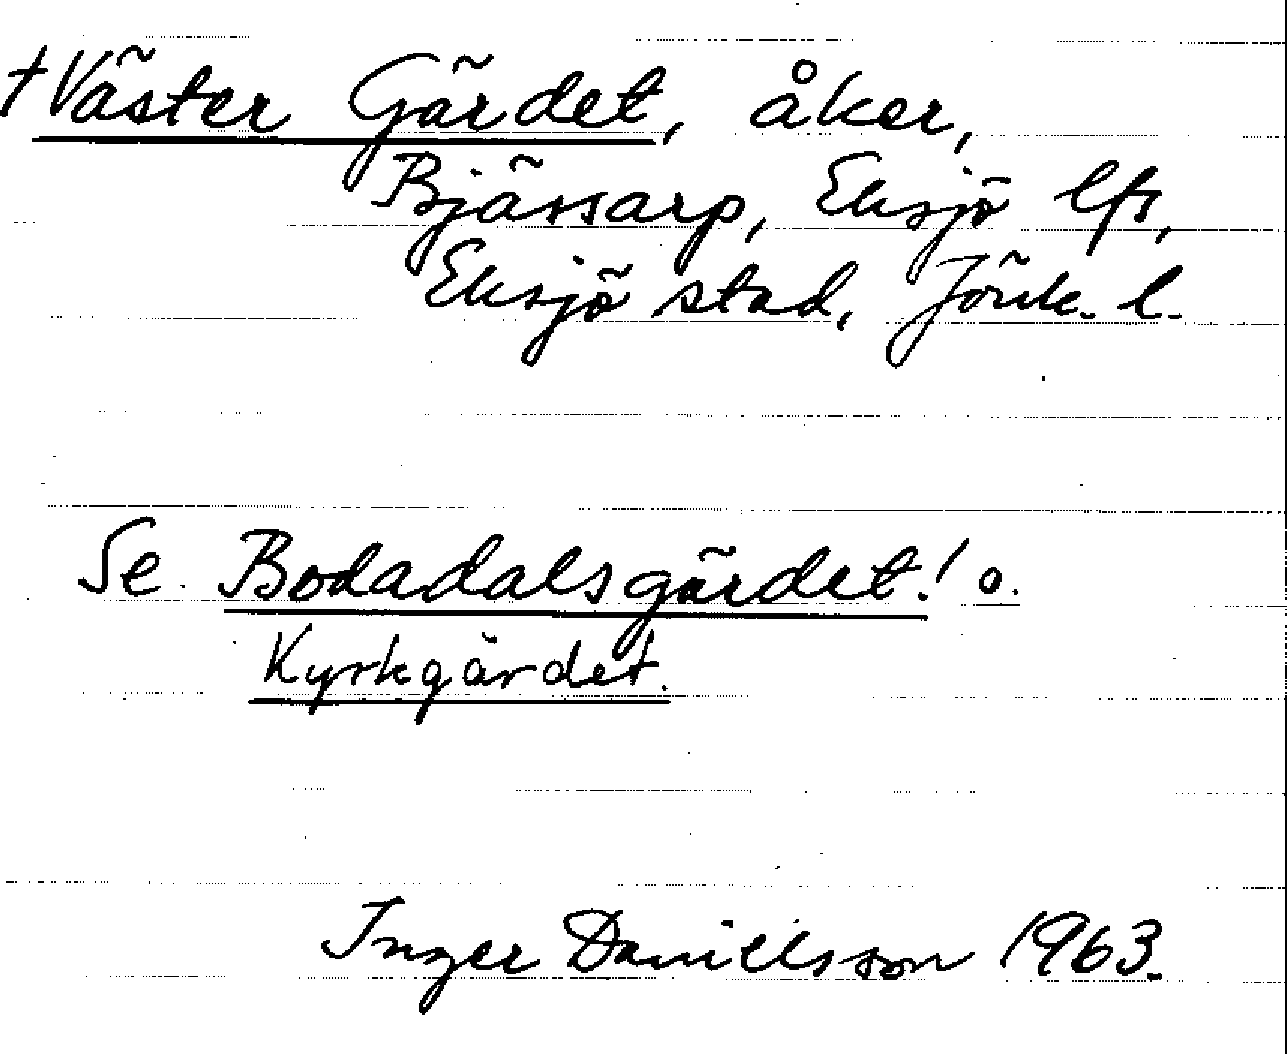 †Väster Gärdet, åker,
Bjässarp, Eksjö lfs,
Eksjö stad, Jönk. l.
Se Bodadalsgärdet! o.
Kyrkgärdet.
Inger Daniellsson 1963.